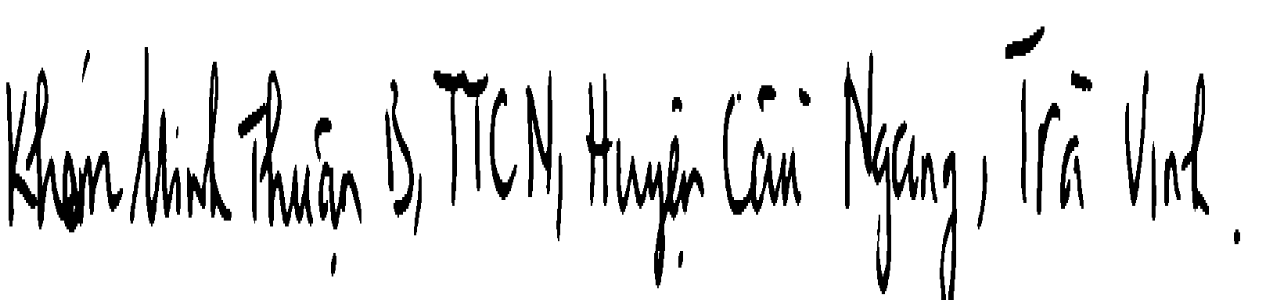 Khóm Minh Thuận B, TTCN, Huyện Cầu Ngang, Trà Vinh.